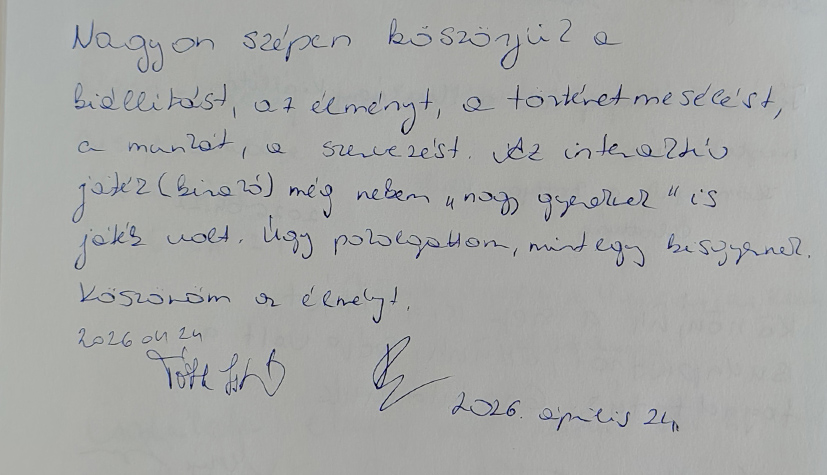 Nagyon szépen köszönjük a
kiállítást, az élményt, a történetmesélést,
a munkát, a szervezést. Az interaktív
játék (kirakó) még nekem "nagy gyereknek" is
játék volt. Úgy pozolgattam, mint egy kisgyerek.
Köszönöm az élményt.
2026 04 24
Tóth
2026. április 24.